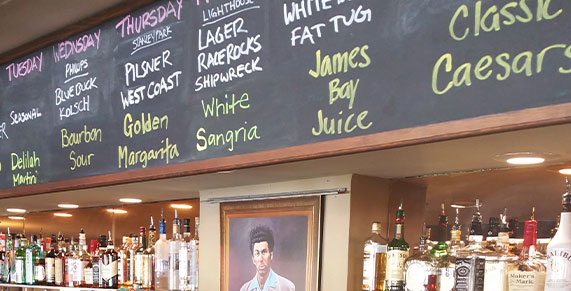 TUESDAY
SEASONAL
Delilah
Martini
WEDNSDAY
PHILIPS
BLUE BUCK
KOLSCH
Bourbon
Sour
THURSDAY
STANLEY PARK
PILSNER
WEST COAST
Golden
Margarita
LIGHTHOUSE
LAGER
RACE ROCKS
SHIPWRECK
White
Sangria
FAT TUG
James
Bay
Juice
Classic
Caesars
Maker's
Mark